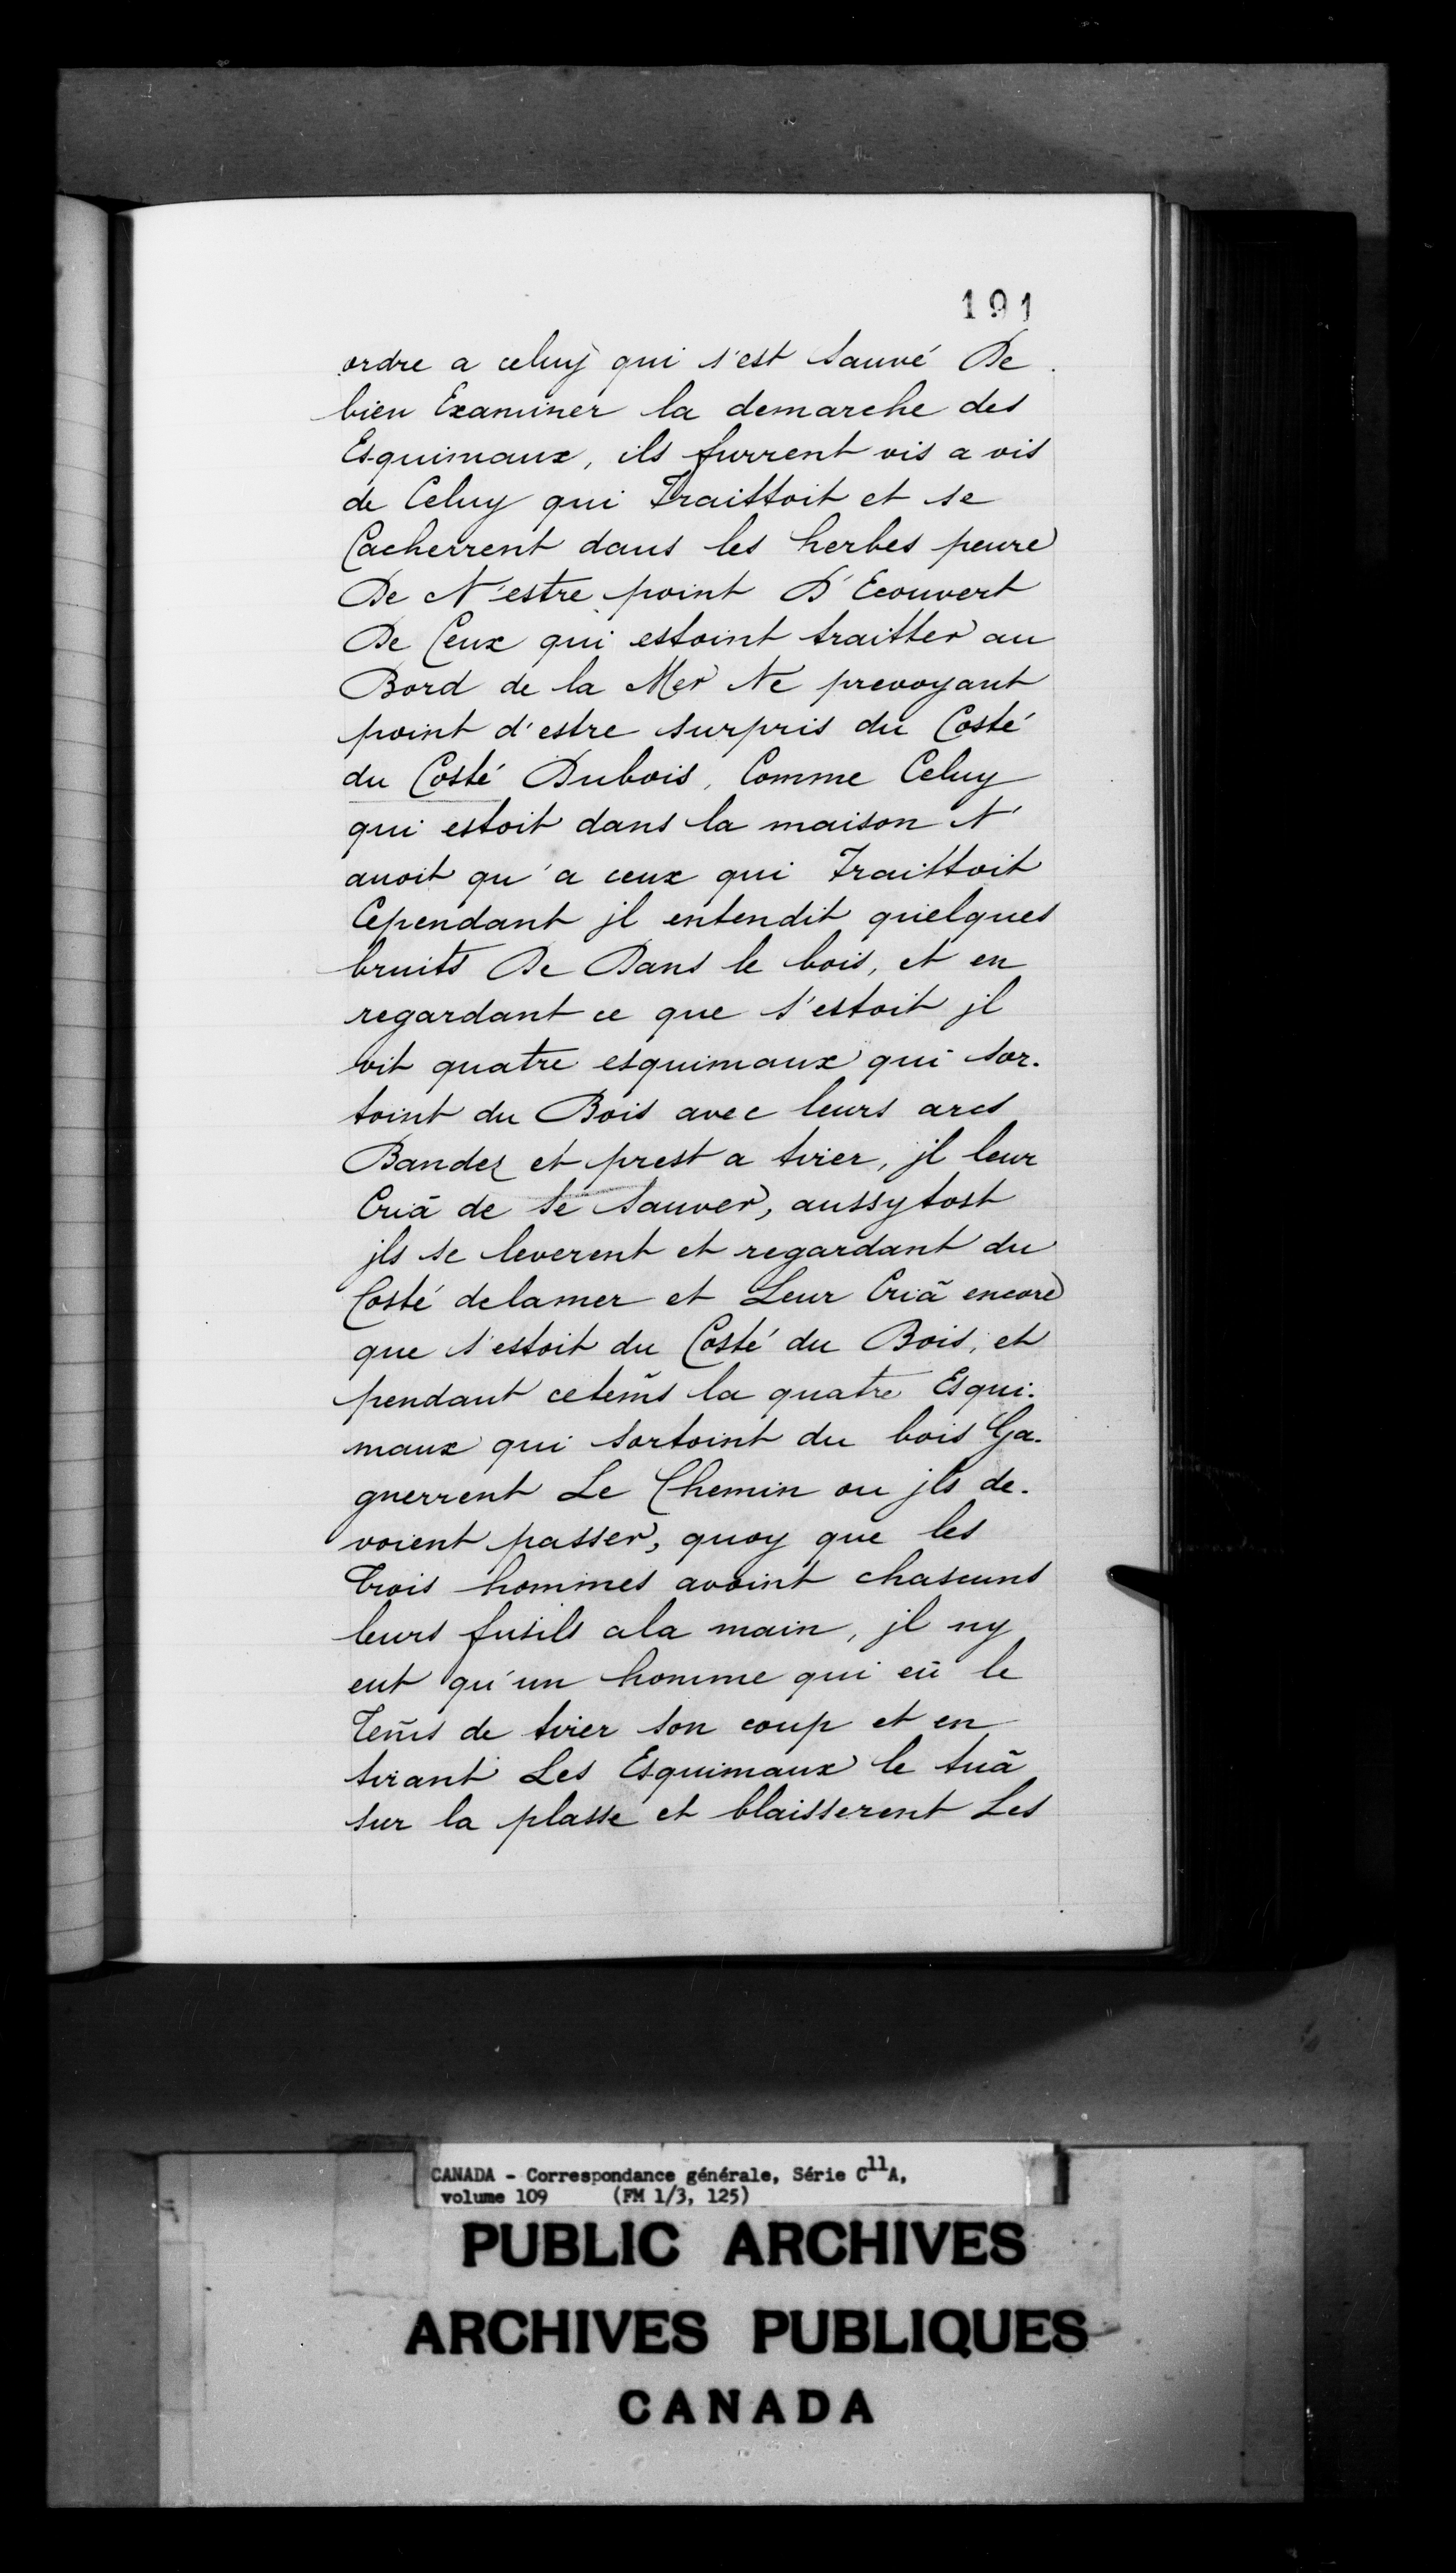 191
ordre a celuy qui s'est sauvé De
bien Examiner la demarche des
Esquimaux, ils furrent vis a vis
de Celuy qui Traittoit et se
Cacherrent dans les herbes peure
De N'estre point D'Ecouvert
De Ceux qui estoint traitter au
Bord de la Mer Ne prevoyant
point d'estre surpris du Costé
du Costé Dubois, Comme Celuy
qui estoit dans la maison N'
auoit qu'a ceux qui Traittoit
Cependant jl entendit quelques
bruits De Dans le bois, et en
regardant ce que s'estoit jl
vit quatre esquimaux qui sor-
toint du Bois avec leurs arcs
Bandez et prest a tirer, jl leur
Criã de se sauver, aussytost
jls se leverent et regardant du
Costé delamer et Leur Criã encore
que s'estoit du Costé du Bois, et
pendant cetem̃s la quatre Esqui-
maux qui sortoint du bois Ga-
gnerrent Le Chemin ou jls de-
voient passer, quoy que les
Trois hommes avoint chascuns
leurs fusils ala main, jl ny
eut qu'un homme qui eũ le
Tem̃s de tirer son coup et en
tirant Les Esquimaux le tuã
sur la plasse et blaisserent Les
CANADA - Correspondance générale, Série C11A,
volume 109 (FM 1/3, 125)
PUBLIC ARCHIVES
ARCHIVES PUBLIQUES
CANADA